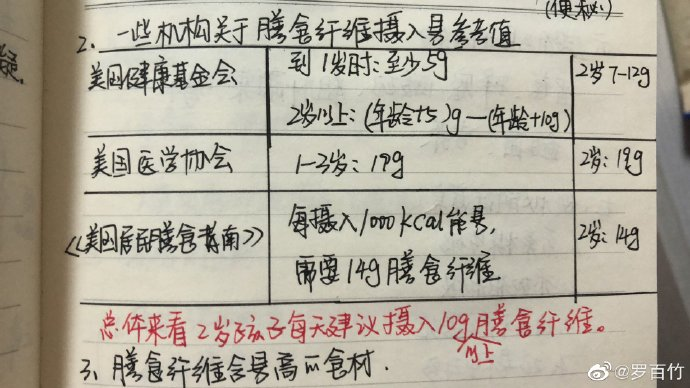 (便秘)
2、一些机构关于膳食纤维摄入量参考值
美国健康基金会
到1岁时:至少5g
2岁以上:(年龄+5)g—(年龄+10g)
2岁7-12g
美国医学协会
1-3岁:19g
2岁:19g
《美国居民膳食指南》
每摄入1000kcal能量,
需要14g膳食纤维
2岁:14g
总体来看2岁孩子每天建议摄入10g以上膳食纤维。
3、膳食纤维含量高的食材.
@罗百竹